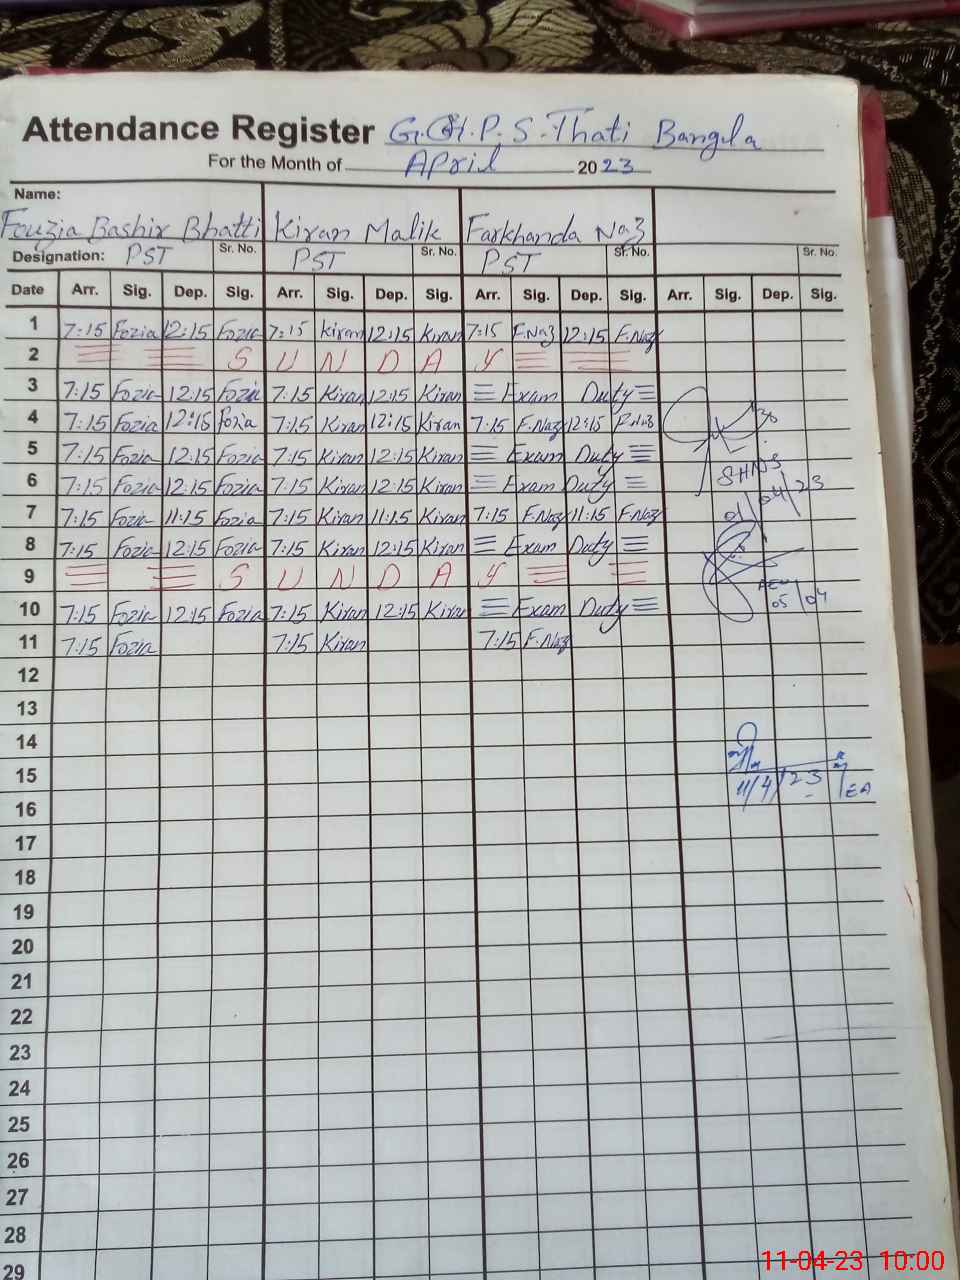 Attendance Register G.G.H.P.S. Thati Bangla
For the Month of April 2023
Name:
Fouzia Bashir Bhatti Kiran Malik Farkhanda Naz
Designation: PST Sr. No. PST Sr. No. PST Sr. No. Sr. No.
Date Arr. Sig. Dep. Sig. Arr. Sig. Dep. Sig. Arr. Sig. Dep. Sig. Arr. Sig. Dep. Sig.
1 7:15 Fozia 12:15 Fozia 7:15 Kiran 12:15 Kiran 7:15 F.Naz 12:15 F.Naz
2 S U N D A Y
3 7:15 Fozia 12:15 Fozia 7:15 Kiran 12:15 Kiran Exam Duty
4 7:15 Fozia 12:15 Fozia 7:15 Kiran 12:15 Kiran 7:15 F.Naz 12:15 F.Naz
5 7:15 Fozia 12:15 Fozia 7:15 Kiran 12:15 Kiran Exam Duty
6 7:15 Fozia 12:15 Fozia 7:15 Kiran 12:15 Kiran Exam Duty
7 7:15 Fozia 11:15 Fozia 7:15 Kiran 11:15 Kiran 7:15 F.Naz 11:15 F.Naz
8 7:15 Fozia 12:15 Fozia 7:15 Kiran 12:15 Kiran Exam Duty
9 S U N D A Y
10 7:15 Fozia 12:15 Fozia 7:15 Kiran 12:15 Kiran Exam Duty
11 7:15 Fozia 7:15 Kiran 7:15 F.Naz
12
13
14
15
16
17
18
19
20
21
22
23
24
25
26
27
28
29
01/04/23
05/04
11/4/23 EA
11-04-23 10:00